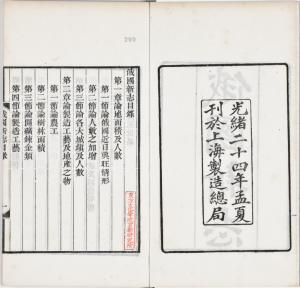 光緒二十四年孟夏
刊於上海製造總局
俄國新志目錄
第一章論地面積及人數
第一節論俄國近日興旺情形
第二節論人數之加增
第三節論各大城鎮及人數
第二章論製造工藝及地產之物
第一節論農工
第二節論樹林面積
第三節論開礦煉金類
第四節論製造工藝
俄國新志目錄